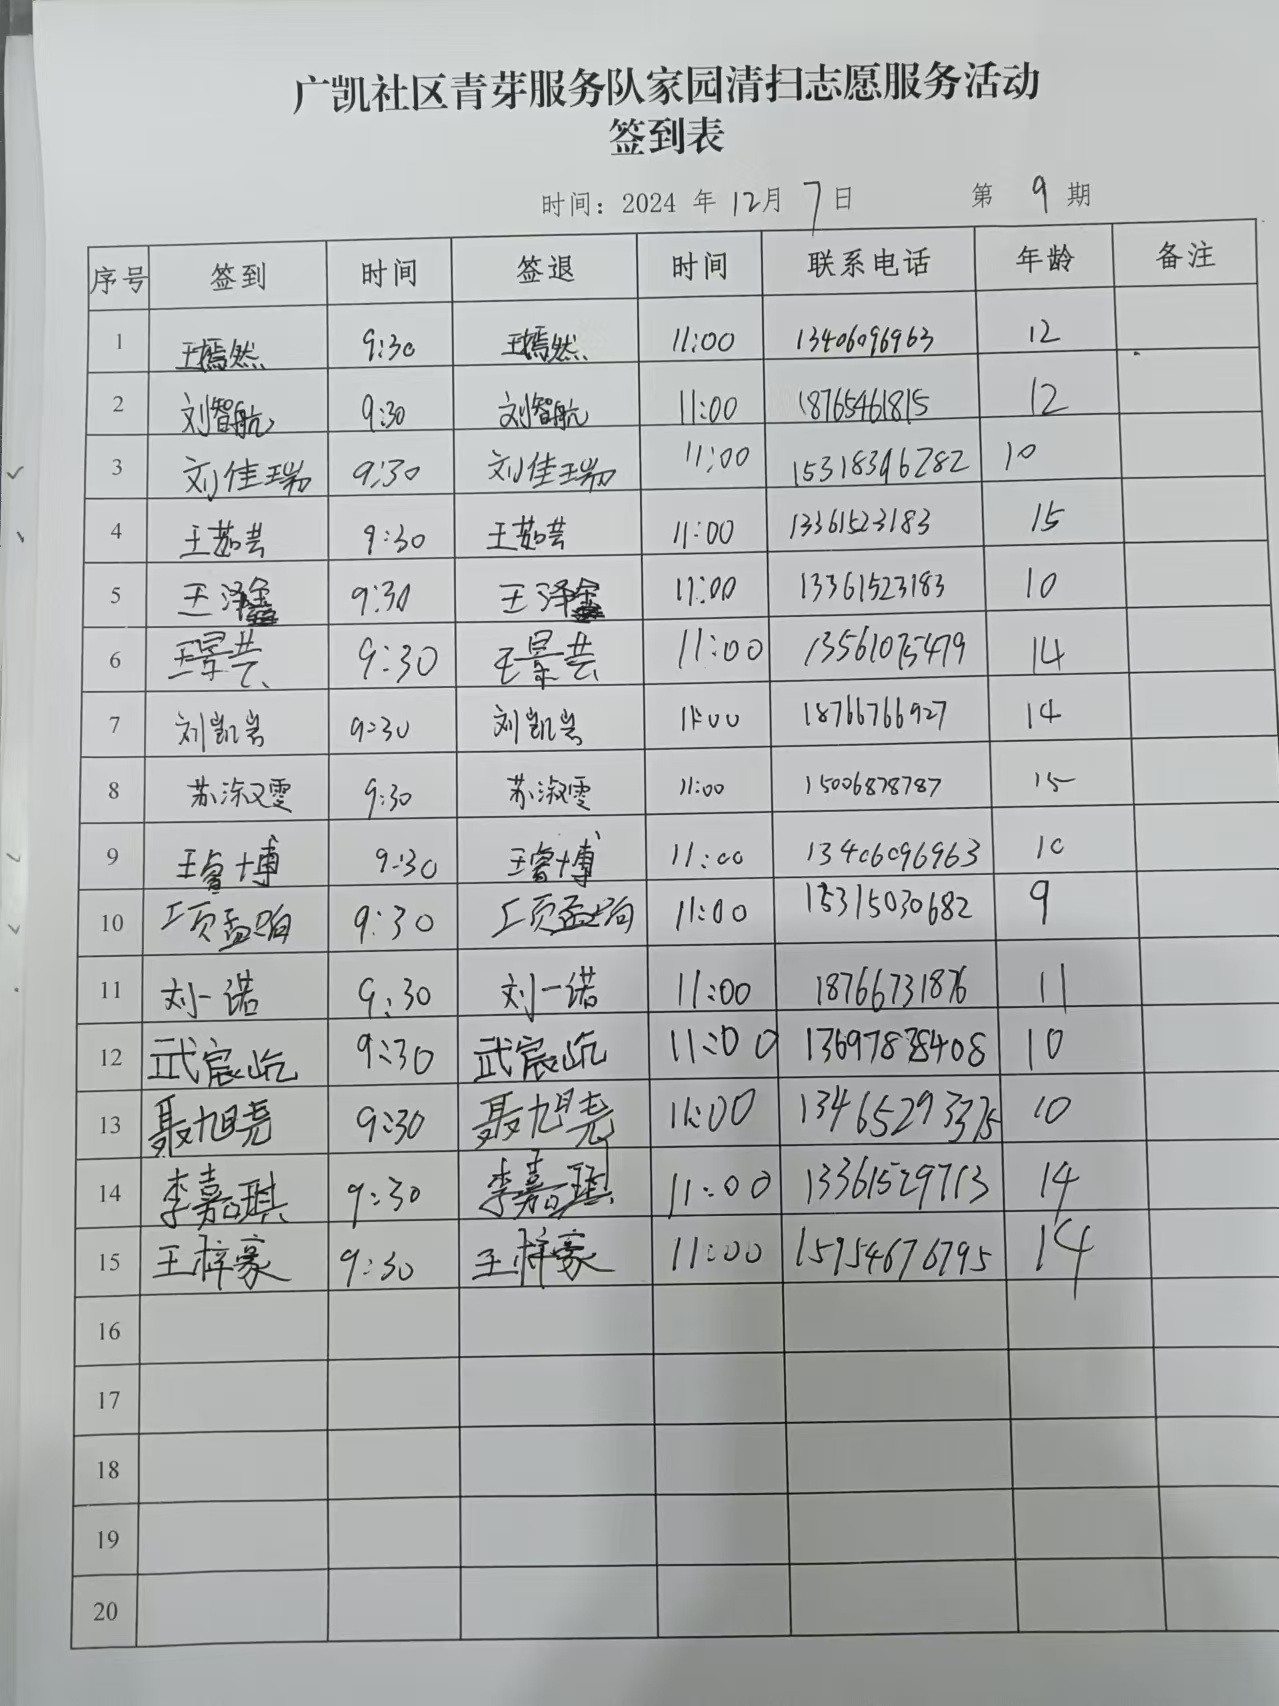 广凯社区青芽服务队家园清扫志愿服务活动
签到表
时间：2024 年 12月 7日 第 9 期
序号 签到 时间 签退 时间 联系电话 年龄 备注
1 王嫣然 9:30 王嫣然 11:00 13406096963 12
2 刘智航 9:30 刘智航 11:00 18765461815 12
3 刘佳瑞 9:30 刘佳瑞 11:00 15318396282 10
4 王茹芸 9:30 王茹芸 11:00 13361523183 15
5 王泽鑫 9:30 王泽鑫 11:00 13361523183 10
6 王景芸 9:30 王景芸 11:00 13561075479 14
7 刘凯岩 9:30 刘凯岩 11:00 18766766927 14
8 苏淑雯 9:30 苏淑雯 11:00 15006878787 15
9 王睿博 9:30 王睿博 11:00 13406096963 10
10 9:30 11:00 15315030682 9
11 刘一诺 9:30 刘一诺 11:00 18766731876 11
12 武宸屹 9:30 武宸屹 11:00 13697838408 10
13 聂旭尧 9:30 聂旭尧 11:00 13465293375 10
14 李嘉琪 9:30 李嘉琪 11:00 13361529713 14
15 王梓豪 9:30 王梓豪 11:00 15954676795 14
16
17
18
19
20